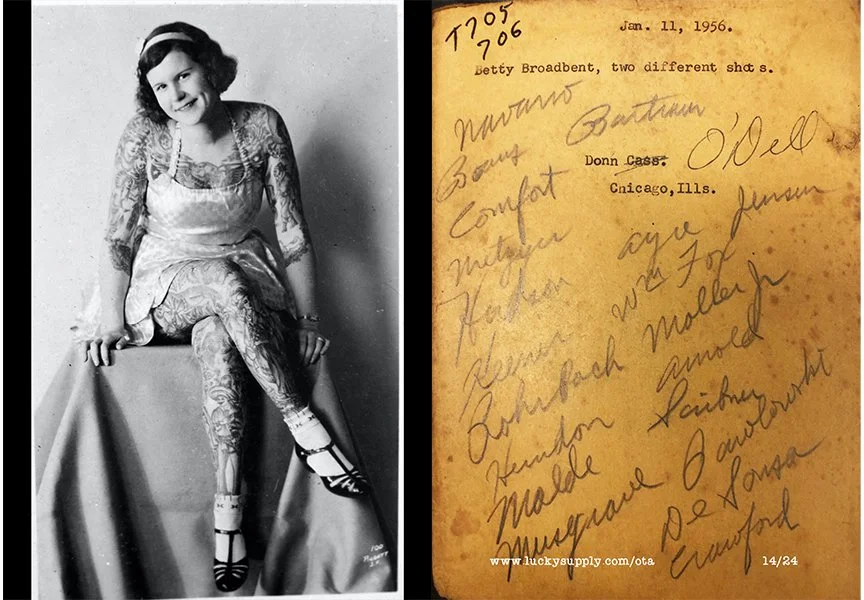 T705
706
Jan. 11, 1956.
Betty Broadbent, two different shots.
Navarro
Bowx Bartram
Donn Cass. O'Dell
Chicago,Ills.
Comfort
Metzger Ayre Jensen
Hudson Wm Fox
Keenor Moller Jr
Rohrbach Arnold
Herndon Scribner
Malde Pawlowski
Musgrave De Sousa
Crawford
www.luckysupply.com/ota 14/24
100